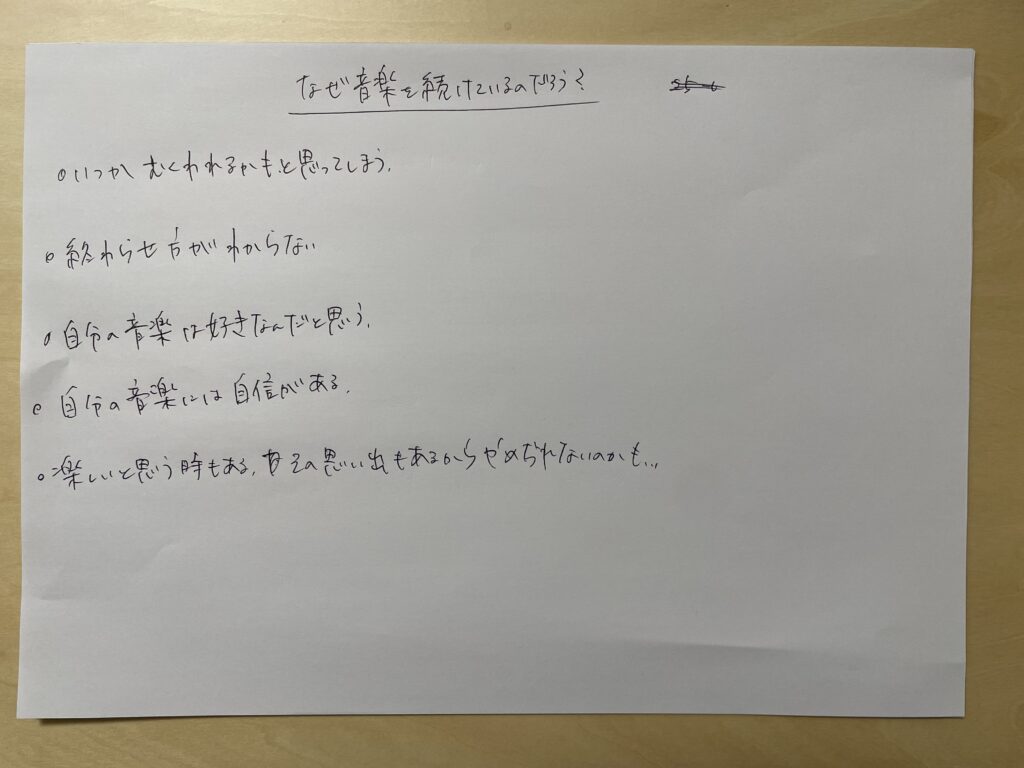 なぜ音楽を続けているのだろう?
○いつかむくわれるかもと思ってしまう.
○終わらせ方がわからない
○自分の音楽は好きなんだと思う.
○自分の音楽には自信がある.
○楽しいと思う時もある.その思い出もあるからやめられないのかも...